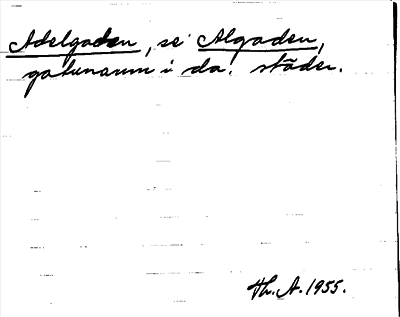 Adelgaden, se Algaden,
gatunamn i da. städer.
Th. A. 1955.